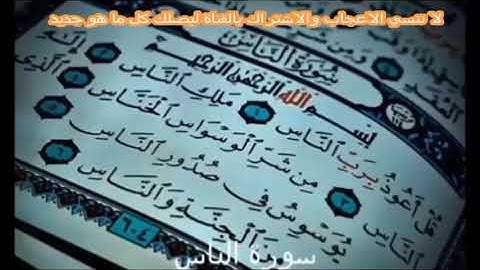 لا تنسي الاعجاب والاشتراك بالقناة ليصلك كل ما هو جديد
وَمِن
سُورَةُ النَّاسِ
بِسْمِ اللَّهِ الرَّحْمَٰنِ الرَّحِيمِ
قُلْ أَعُوذُ بِرَبِّ ٱلنَّاسِ ١ مَلِكِ ٱلنَّاسِ ٢ إِلَٰهِ
ٱلنَّاسِ ٣ مِن شَرِّ ٱلْوَسْوَاسِ ٱلْخَنَّاسِ ٤ ٱلَّذِي
يُوَسْوِسُ فِي صُدُورِ ٱلنَّاسِ ٥
ٱلْجِنَّةِ وَٱلنَّاسِ ٦
٦٠٤
سورة الناس